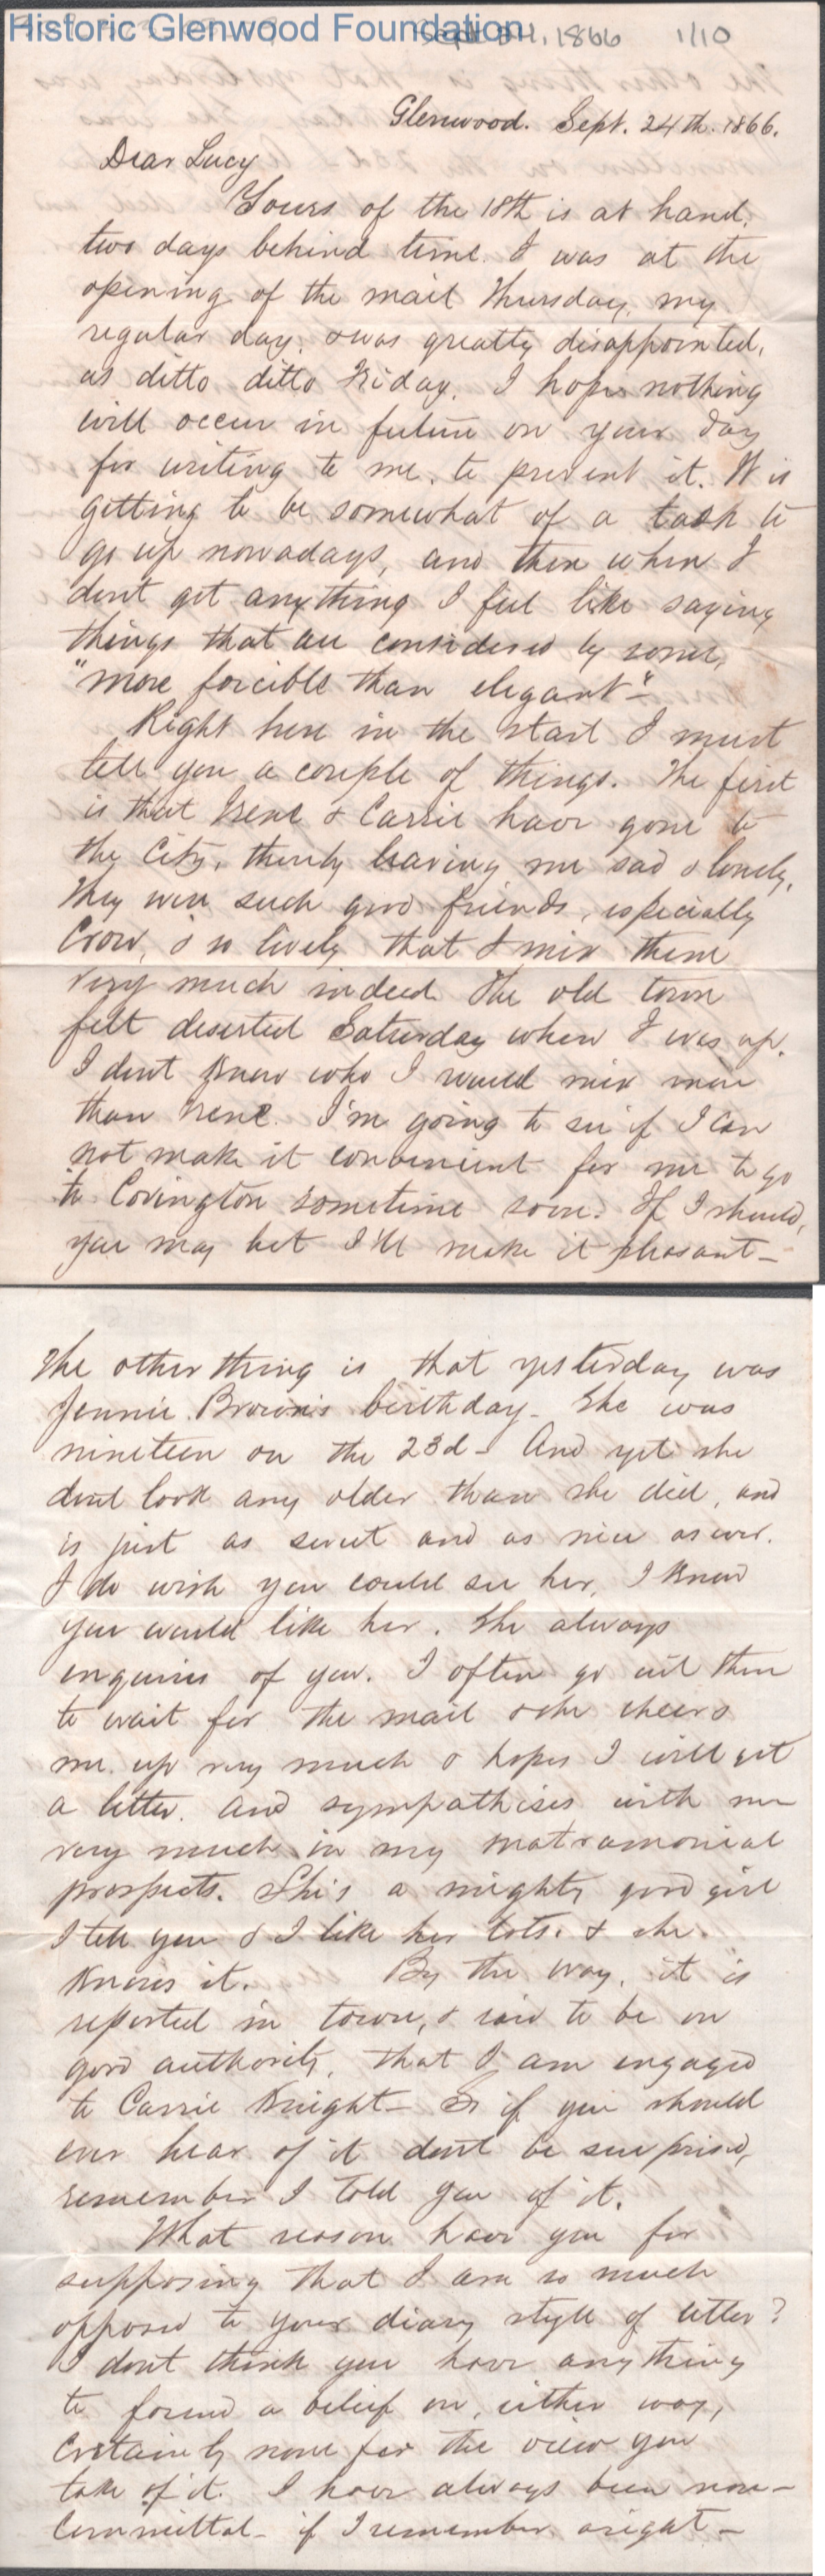 Historic Glenwood Foundation
Sept 24, 1866 1/10
Glenwood. Sept. 24th. 1866.
Dear Lucy
Yours of the 18th is at hand,
two days behind time. I was at the
opening of the mail Thursday, my
regular day, & was greatly disappointed,
as ditto ditto Friday. I hope nothing
will occur in future on your day
for writing to me, to prevent it. It is
getting to be somewhat of a task to
go up nowadays, and then when I
dont get anything I feel like saying
things that are considered by some,
"more forcible than elegant"-
Right here in the start I must
tell you a couple of things. The first
is that Irene & Carrie have gone to
the City, thereby leaving me sad & lonely.
They were such good friends, especially
Crow, & so lively that I miss them
very much indeed. The old town
felt deserted Saturday when I was up.
I dont know who I would miss more
than Irene. I'm going to see if I can
not make it convenient for me to go
to Covington sometime soon. If I should,
you may bet I'll make it pleasant-
The other thing is that yesterday was
Jennie Brown's birthday- She was
nineteen on the 23d- And yet she
dont look any older than she did, and
is just as sweet and as nice as ever.
I do wish you could see her, I know
you would like her. She always
enquires of you. I often go out there
to wait for the mail & she cheers
me up very much & hopes I will get
a letter. And sympathises with me
very much in my matramonial
prospects. She's a mighty good girl
I tell you & I like her lots. & she
knows it. By the way, it is
reported in town, & said to be on
good authority, that I am engaged
to Carrie Knight- So if you should
ever hear of it dont be surprised,
remember I told you of it.
What reason have you for
supposing that I am so much
opposed to your diary style of letter?
I dont think you have anything
to found a belief on, either way,
Certainly none for the view you
take of it. I have always been non-
Committal- if I remember aright-